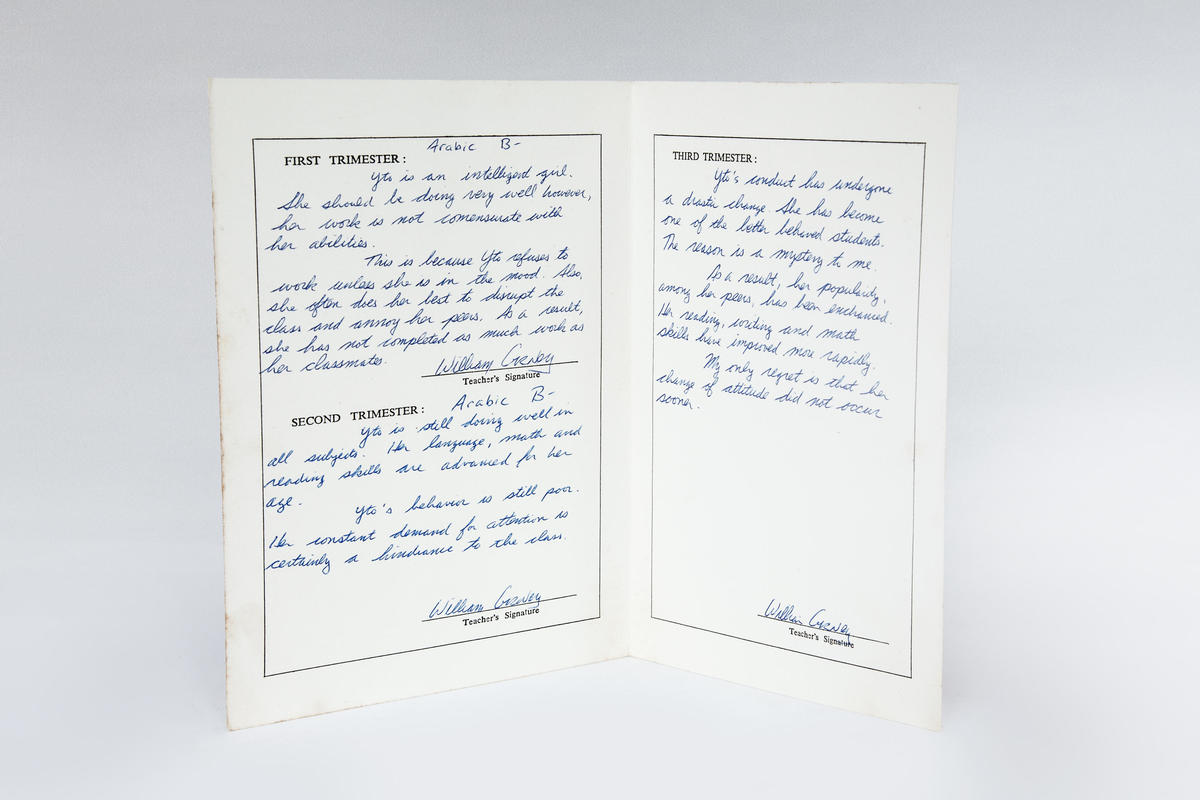 Arabic B-
FIRST TRIMESTER:
Yto is an intelligent girl.
She should be doing very well however,
her work is not comensurate with
her abilities.
This is because Yto refuses to
work unless she is in the mood. Also,
she often does her best to disrupt the
class and annoy her peers. As a result,
she has not completed as much work as
her classmates.
William
Teacher's Signature
SECOND TRIMESTER: Arabic B-
Yto is still doing well in
all subjects. Her language, math and
reading skills are advanced for her
age.
Yto's behavior is still poor.
Her constant demand for attention is
certainly a hindrance to the class.
William
Teacher's Signature
THIRD TRIMESTER:
Yto's conduct has undergone
a drastic change. She has become
one of the better behaved students.
The reason is a mystery to me.
As a result, her popularity,
among her peers, has been enchanced.
Her reading, writing and math
skills have improved more rapidly.
My only regret is that her
change of attitude did not occur
sooner.
William
Teacher's Signature